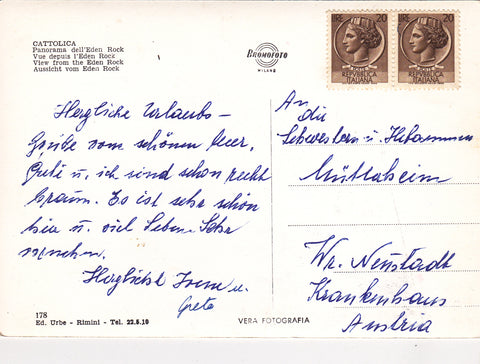 CATTOLICA
Panorama dell'Eden Rock
Vue depuis l'Eden Rock
View from the Eden Rock
Aussicht vom Eden Rock
BROMOFOTO
MILANO
LIRE 20
REPVBBLICA
ITALIANA
LIRE 20
REPVBBLICA
ITALIANA
Herzliche Urlaubs-
Grüße vom schönen Meer,
Greti u. ich sind schon recht
braun. Es ist sehr schön
hier u. viel Leben
Herzlichst
Greta
An
die
Schwestern u. Hebammen
Wr. Neustadt
Krankenhaus
Austria
178
Ed. Urbe - Rimini - Tel. 22.5.10
VERA FOTOGRAFIA